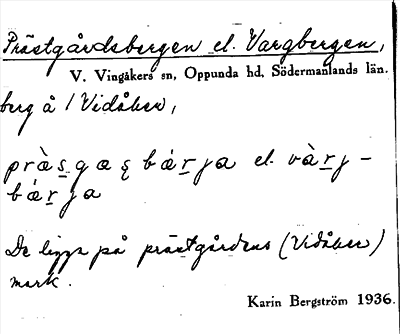 Prästgårdsbergen el. Vargbergen,
V. Vingåkers sn, Oppunda hd, Södermanlands län.
berg å / Vidåker,
prὰs̲gas̨ bάr̲ja el. vὰr̲j-
bάr̲ja
De ligga på prästgårdens (Vidåker)
mark.
Karin Bergström 1936.